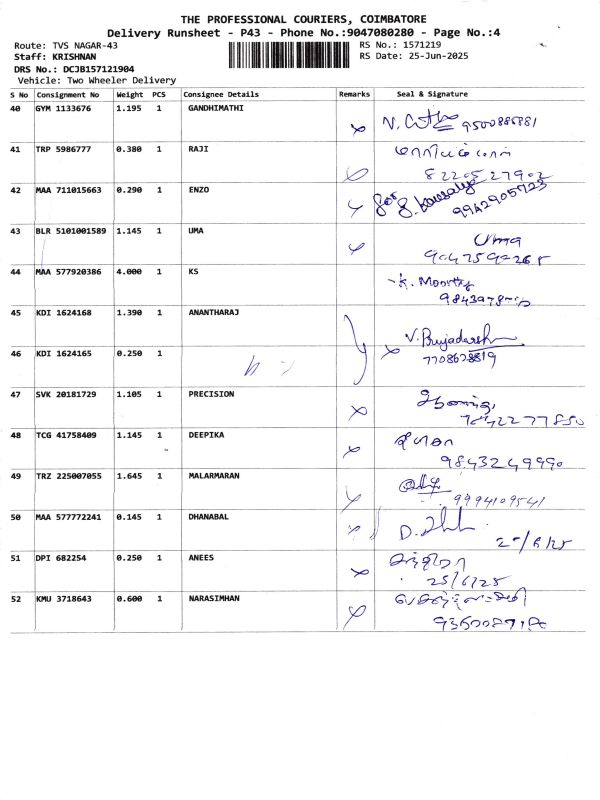 THE PROFESSIONAL COURIERS, COIMBATORE
Delivery Runsheet - P43 - Phone No.:9047080280 - Page No.:4
Route: TVS NAGAR-43 RS No.: 1571219
Staff: KRISHNAN RS Date: 25-Jun-2025
DRS No.: DCJB157121904
Vehicle: Two Wheeler Delivery
S No Consignment No Weight PCS Consignee Details Remarks Seal & Signature
40 GYM 1133676 1.195 1 GANDHIMATHI
9500886881
41 TRP 5986777 0.380 1 RAJI
8220527902
42 MAA 711015663 0.290 1 ENZO
9942905723
43 BLR 5101001589 1.145 1 UMA Uma
44 MAA 577920386 4.000 1 KS K. Moorthy
45 KDI 1624168 1.390 1 ANANTHARAJ
46 KDI 1624165 0.250 1
47 SVK 20181729 1.105 1 PRECISION
48 TCG 41758409 1.145 1 DEEPIKA
9843249990
49 TRZ 225007055 1.645 1 MALARMARAN
9994109541
50 MAA 577772241 0.145 1 DHANABAL
51 DPI 682254 0.250 1 ANEES
25/6/25
52 KMU 3718643 0.600 1 NARASIMHAN